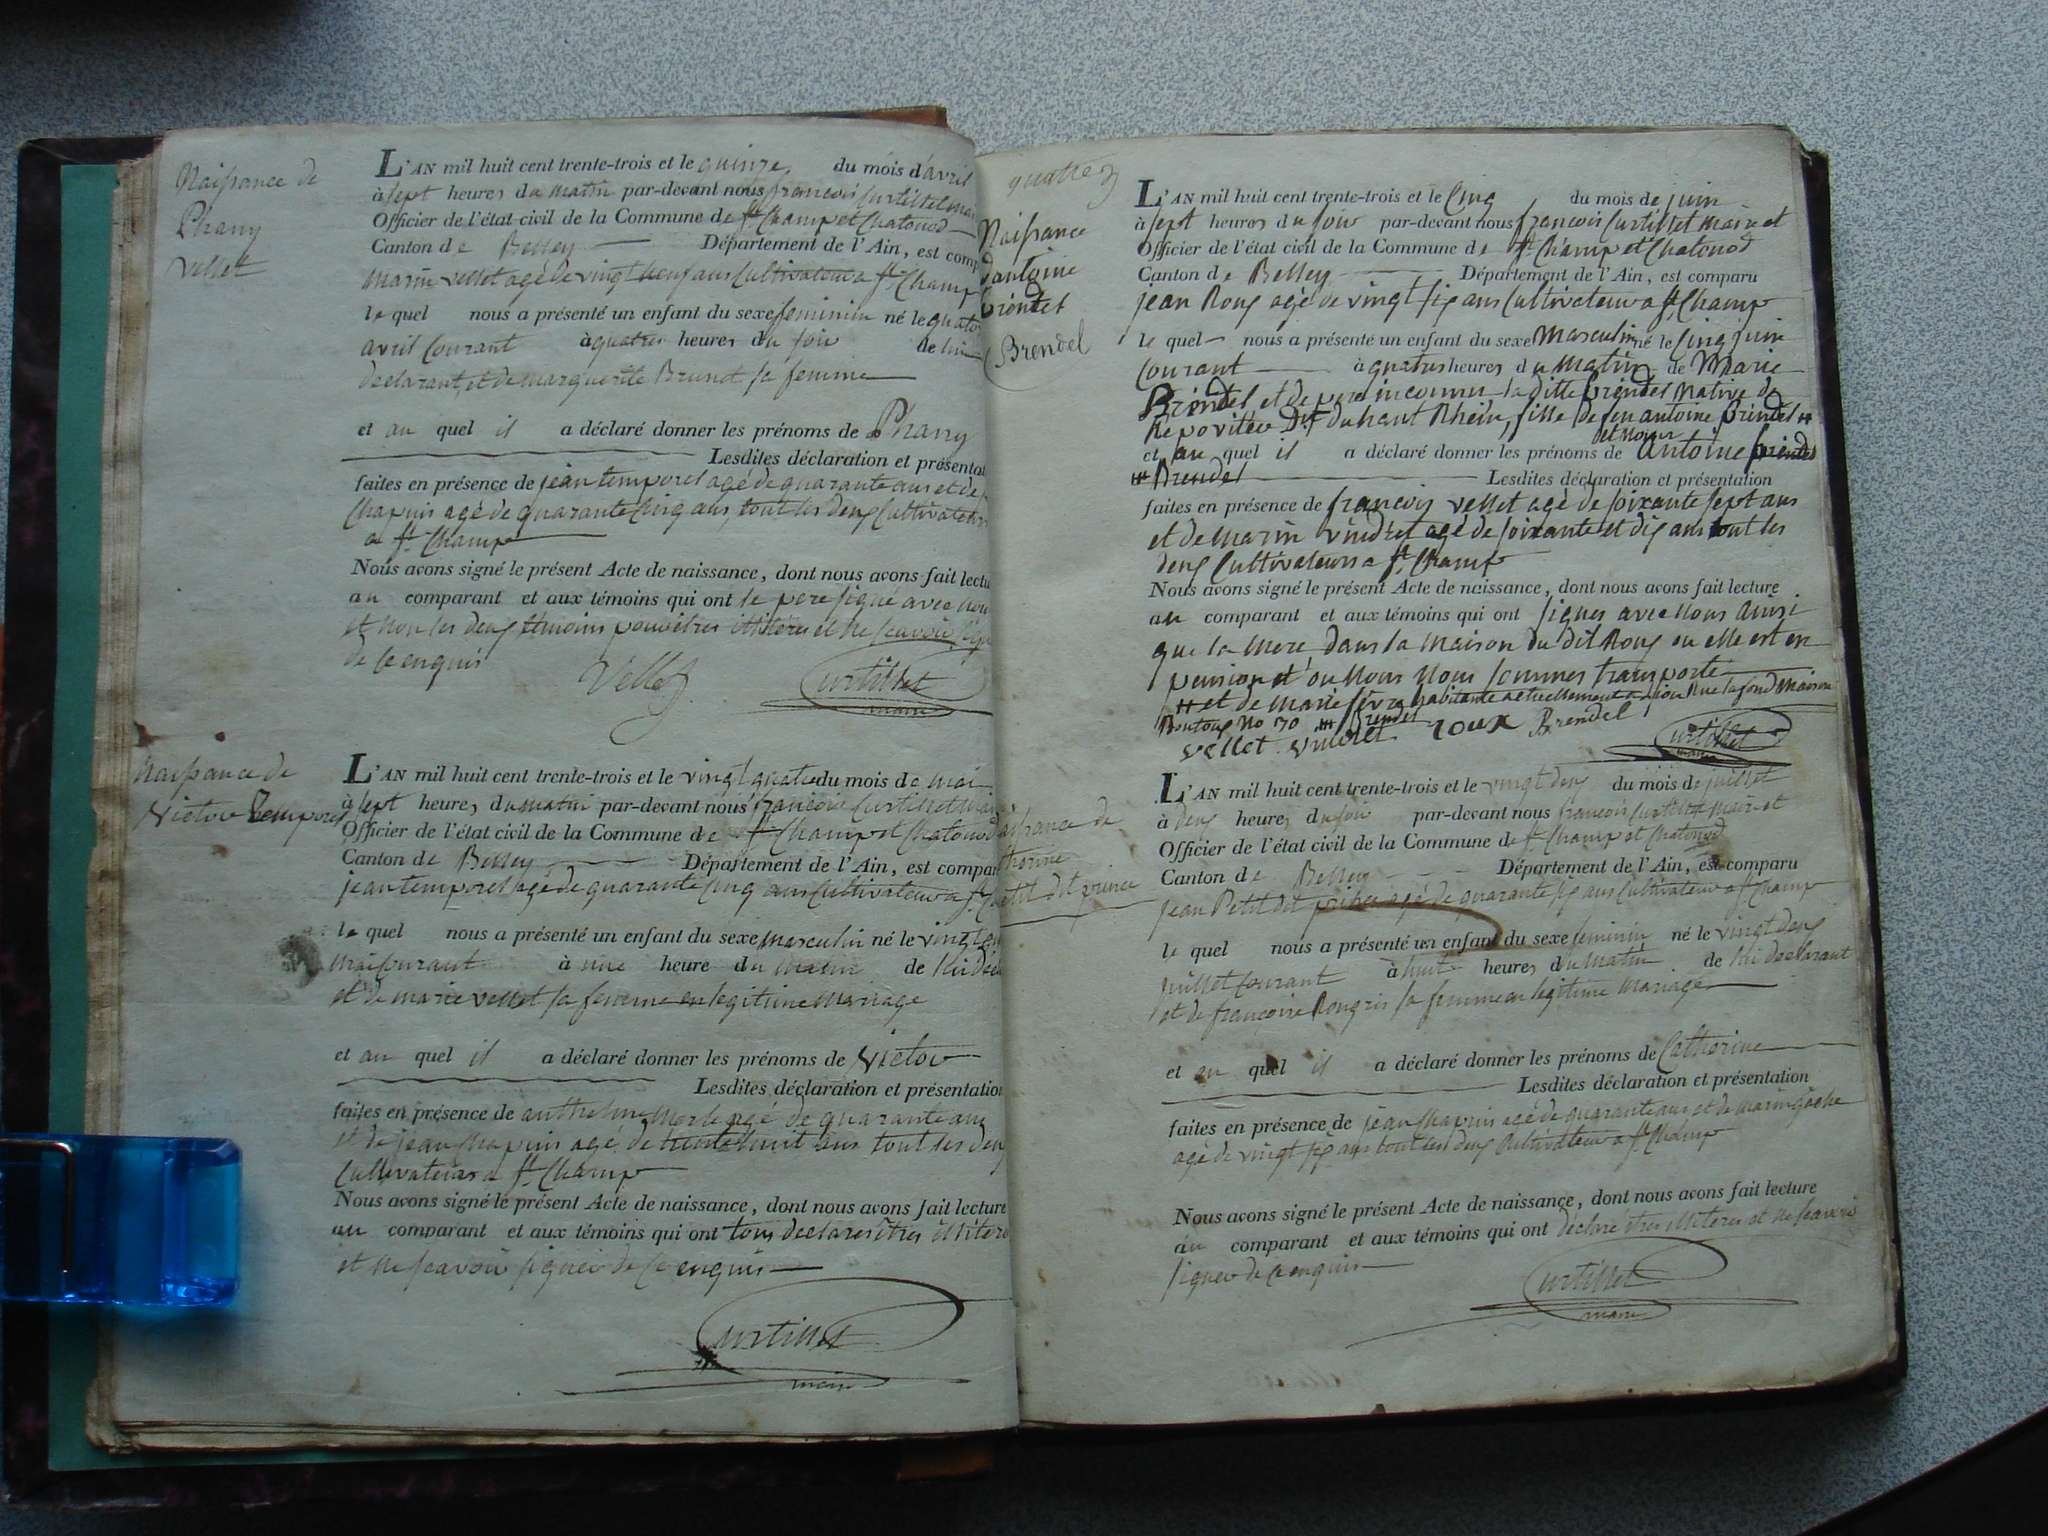 Naissance de
Phany
Vellet
L'AN mil huit cent trente-trois et le quinze du mois d'avril
à sept heures du matin par-devant nous francois Curtillet
Officier de l'état civil de la Commune de St Champ et Chatonod
Canton de Belley Département de l'Ain, est comp
Marin vellet agé de vingt neuf ans Cultivateur a St Champ
le quel nous a présenté un enfant du sexe feminin né le quato
avril Courant à quatre heures du soir de lui
declarant, et de marguerite Brunet sa femme
et au quel il a déclaré donner les prénoms de Phany
Lesdites déclaration et présentat
faites en présence de jean temporel agé de quarante ans et de
Chapuis agé de quarante Cinq ans, tout les deux Cultivateurs
a St Champ
Nous avons signé le présent Acte de naissance, dont nous avons fait lectu
au comparant et aux témoins qui ont le pere signé avec nou
et non les deux temoins pour êtres illitéres et ne scavoir
de ce enquis
Vellet
Curtillet
maire
Naissance de
Victor Temporel
L'AN mil huit cent trente-trois et le vingt quatre du mois de mai
à sept heures du matin par-devant nous francois Curtillet
Officier de l'état civil de la Commune de St Champ et Chatonod
Canton de Belley Département de l'Ain, est compar
jean temporel agé de quarante Cinq ans Cultivateur a St
le quel nous a présenté un enfant du sexe masculin né le vingt
mai Courant à une heure du matin de lui
et de marie vellet sa femme en legitime mariage
et au quel il a déclaré donner les prénoms de Victor
Lesdites déclaration et présentation
faites en présence de anthelme agé de quarante ans
et de jean Chapuis agé de trente huit ans tout les deux
Cultivateurs a St Champ
Nous avons signé le présent Acte de naissance, dont nous avons fait lecture
au comparant et aux témoins qui ont tous declarés êtres illitere
et ne scavoir signer de ce enquis
Curtillet
maire
quatre
Naissance
d'antoine
briendel
Brendel
L'AN mil huit cent trente-trois et le Cinq du mois de juin
à sept heures du soir par-devant nous francois Curtillet Maire et
Officier de l'état civil de la Commune de St Champ et Chatonod
Canton de Belley Département de l'Ain, est comparu
jean Roux agé de vingt six ans Cultivateur a St Champ
le quel nous a présenté un enfant du sexe Masculin né le Cinq juin
Courant à quatres heures du Matin de Marie
Briendel et de pere inconnu la ditte briendel Native de
du haut Rhein, fille de feu antoine briendel #
et nom
et au quel il a déclaré donner les prénoms de antoine briendel
Brendel Lesdites déclaration et présentation
faites en présence de francois vellet agé de soixante sept ans
et de Marin vindret agé de soixante et dix ans tout les
deux Cultivateurs a St Champ
Nous avons signé le présent Acte de naissance, dont nous avons fait lecture
au comparant et aux témoins qui ont signés avec nous ainsi
que la mere dans la maison du dit Roux ou elle est en
pension et ou Nous Nous sommes transporté
# et de marie habitante actuellement a Lion Rue lafond Maison
No 70 Brendel
vellet vindret roux Brendel
Curtillet
maire
Naissance de
petit dit prince
L'AN mil huit cent trente-trois et le vingt deux du mois de juillet
à deux heures du soir par-devant nous francois Curtillet Maire et
Officier de l'état civil de la Commune de St Champ et Chatonod
Canton de Belley Département de l'Ain, est comparu
jean Petit dit prince agé de quarante six ans Cultivateur a St Champ
le quel nous a présenté un enfant du sexe feminin né le vingt deux
juillet Courant à huit heures du Matin de lui declarant
et de francoise sa femme en legitime Mariage
et au quel il a déclaré donner les prénoms de Catherine
Lesdites déclaration et présentation
faites en présence de jean Chapuis agé de quarante ans et de marin
agé de vingt six ans tout les deux Cultivateur a St Champ
Nous avons signé le présent Acte de naissance, dont nous avons fait lecture
au comparant et aux témoins qui ont déclaré êtres illiteres et ne scavoir
signer de ce enquis
Curtillet
maire